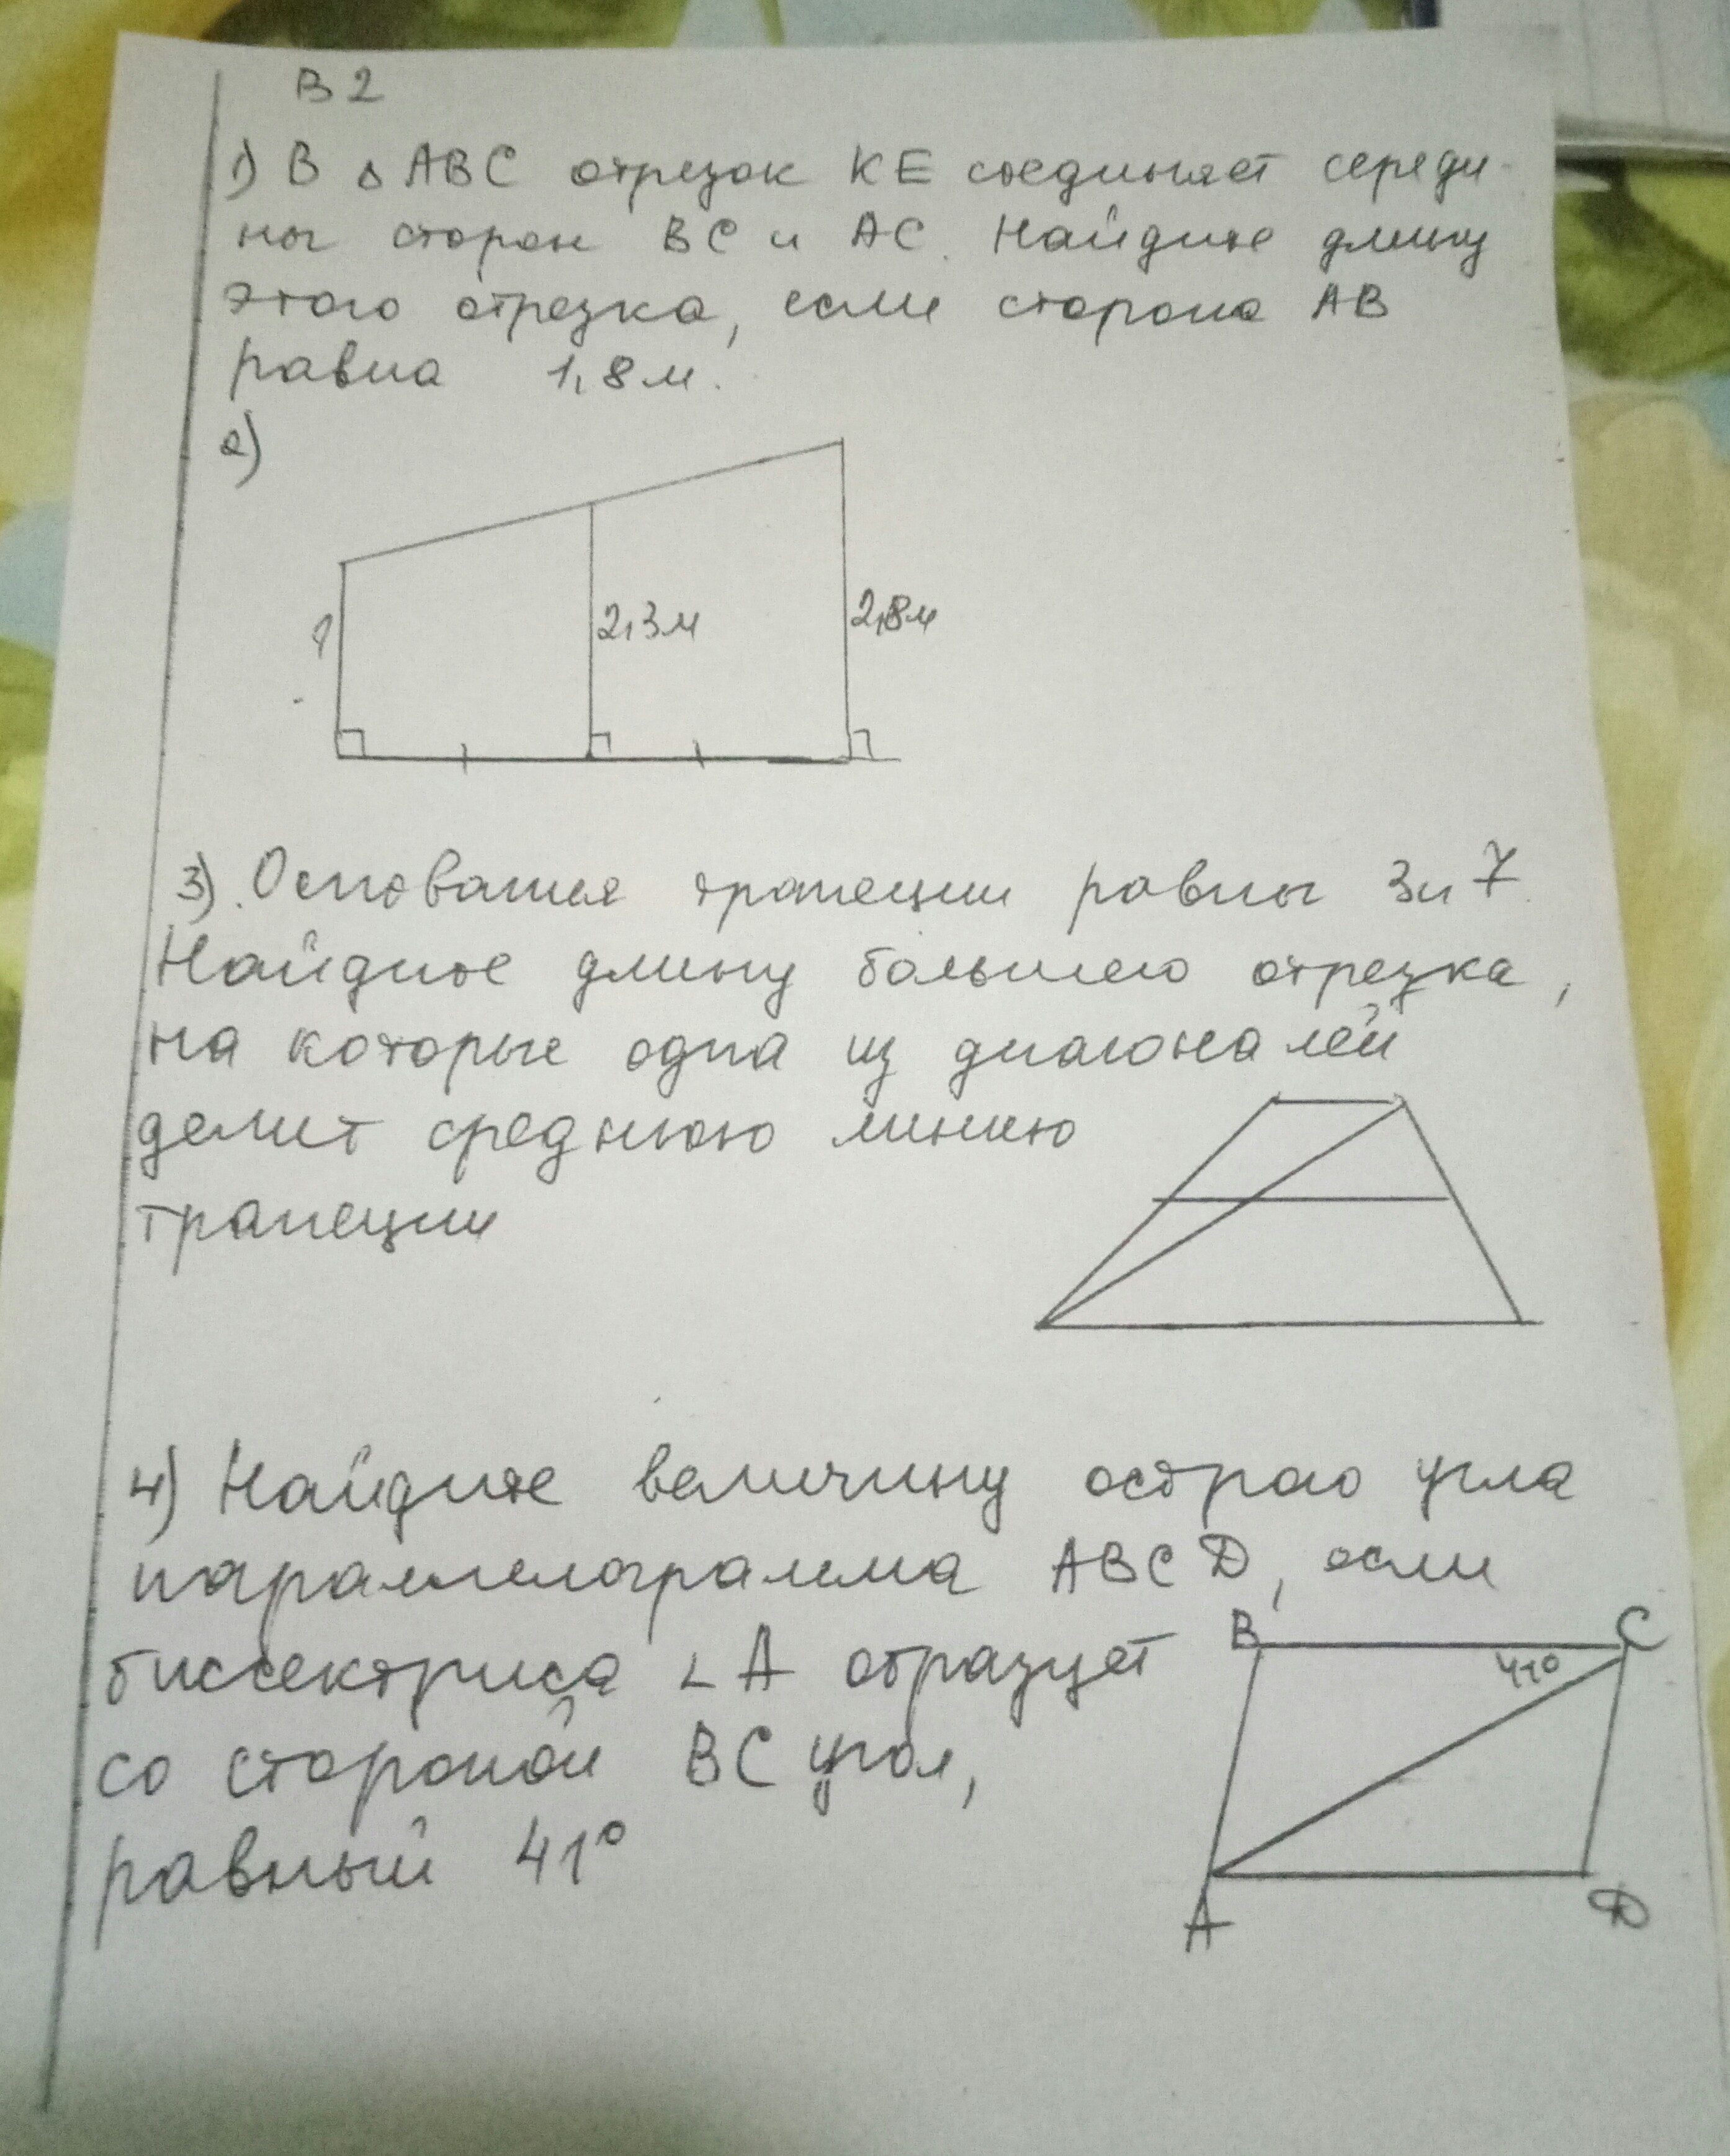 В 2
1) В △ ABC отрезок KE соединяет середи-
ны сторон BC и AC. Найдите длину
этого отрезка, если сторона AB
равна 1,8 м.
2)
?
2,3 м
2,8 м
3). Основания трапеции равны 3 и 7.
Найдите длину большего отрезка,
на которые одна из диагоналей
делит среднюю линию
трапеции
4) Найдите величину острого угла
параллелограмма ABCD, если
биссектриса ∠A образует
со стороной BC угол,
равный 41°
B
C
41°
A
D